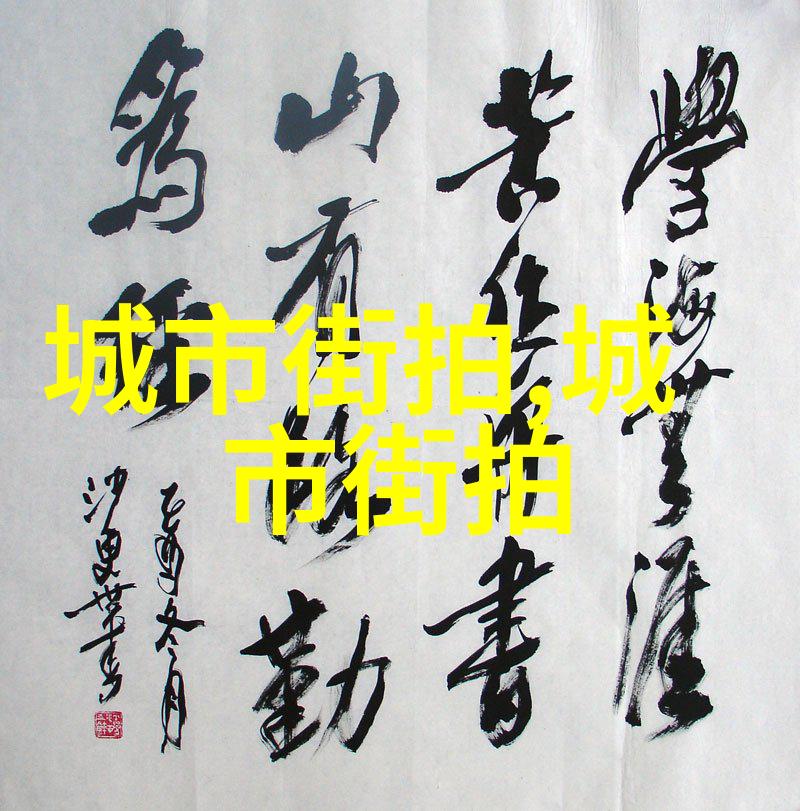 城市街拍,城
市街拍
學海無涯
苦作舟書
山有路勤
為徑
乙酉冬月
沙更世書